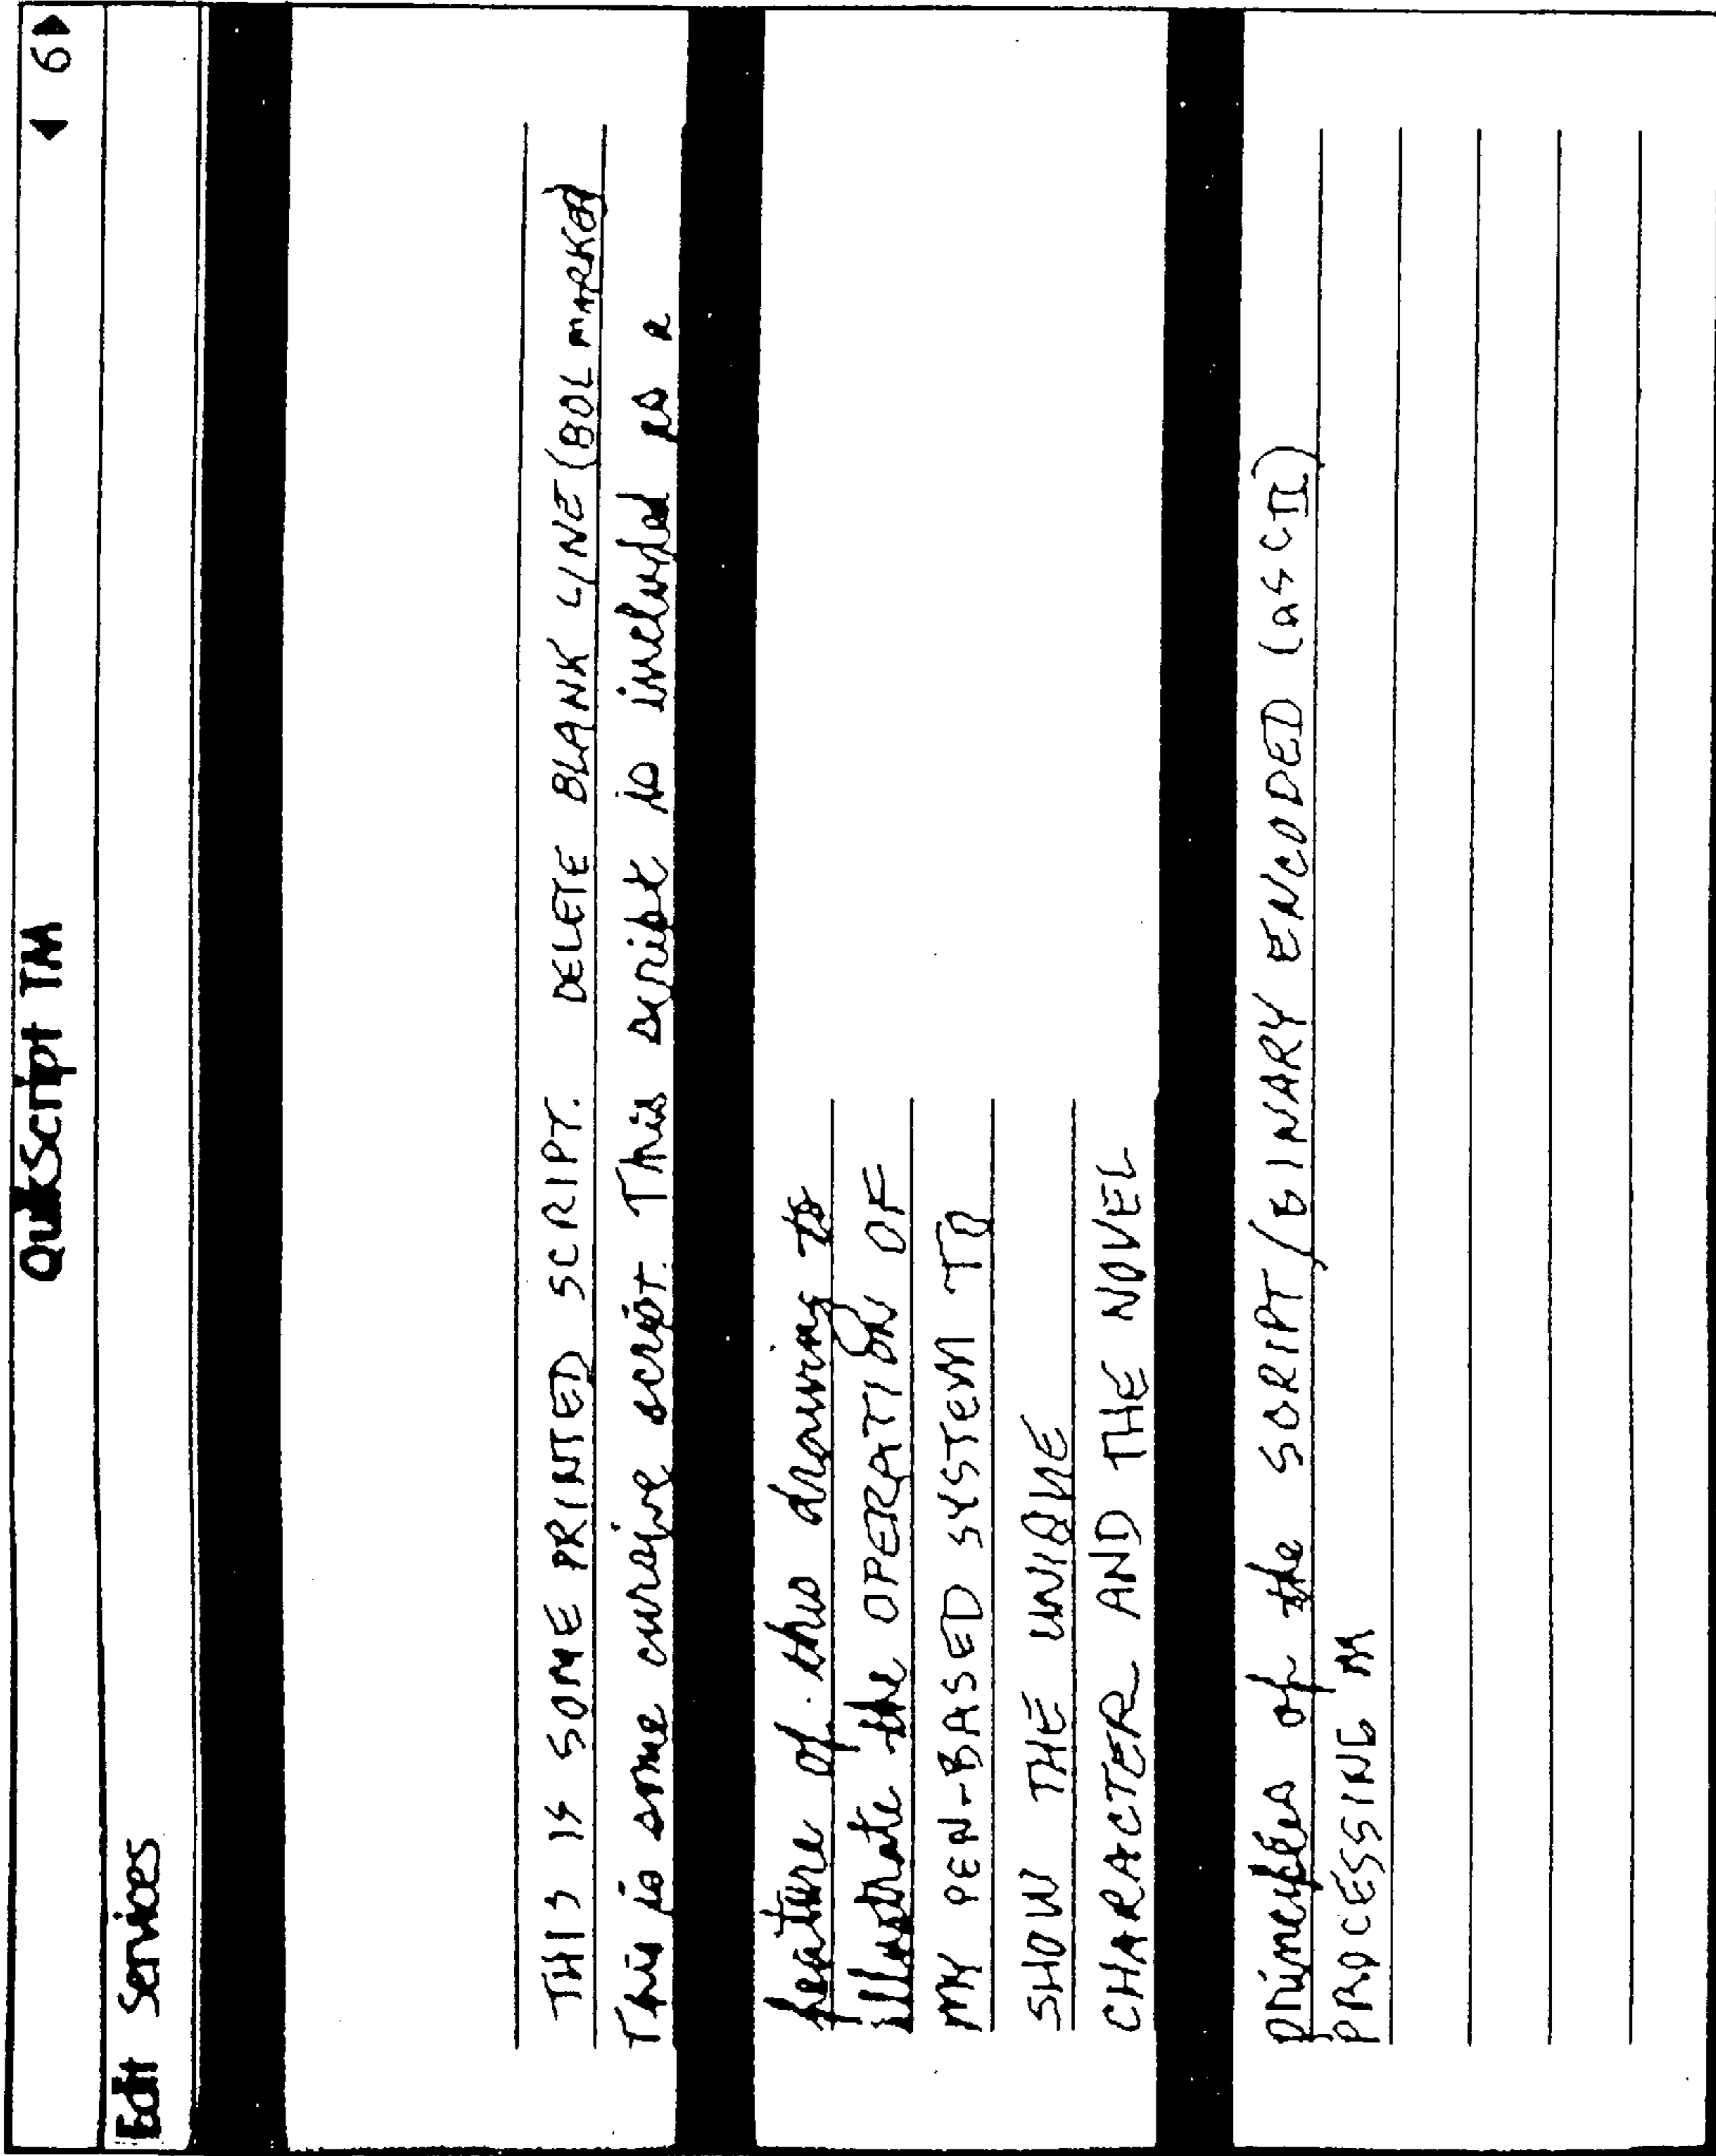 QuikScript TM
◀ 6 ▶
Edit Services
THIS IS SOME PRINTED SCRIPT. DELETE BLANK LINE (BOL MARKED
This is some cursive script. This script is included as a
feature of this drawing to
illustrate the OPERATION OF
MY PEN-BASED SYSTEM TO
SHOW THE UNIQUE
CHARACTER AND THE NOVEL
principles of the SCRIPT/BINARY ENCODED (ASCII)
PROCESSING M